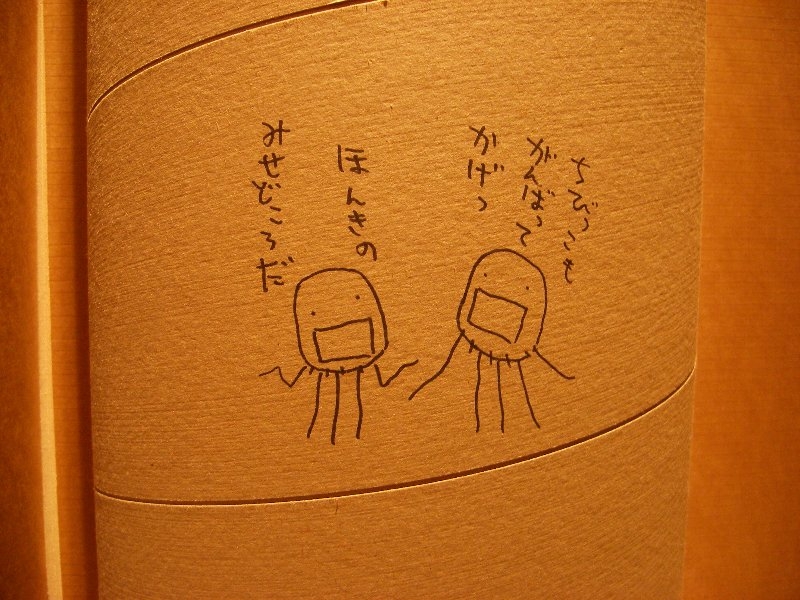 ちびっこも
がんばって
かげっ
ほんきの
みせどころだ